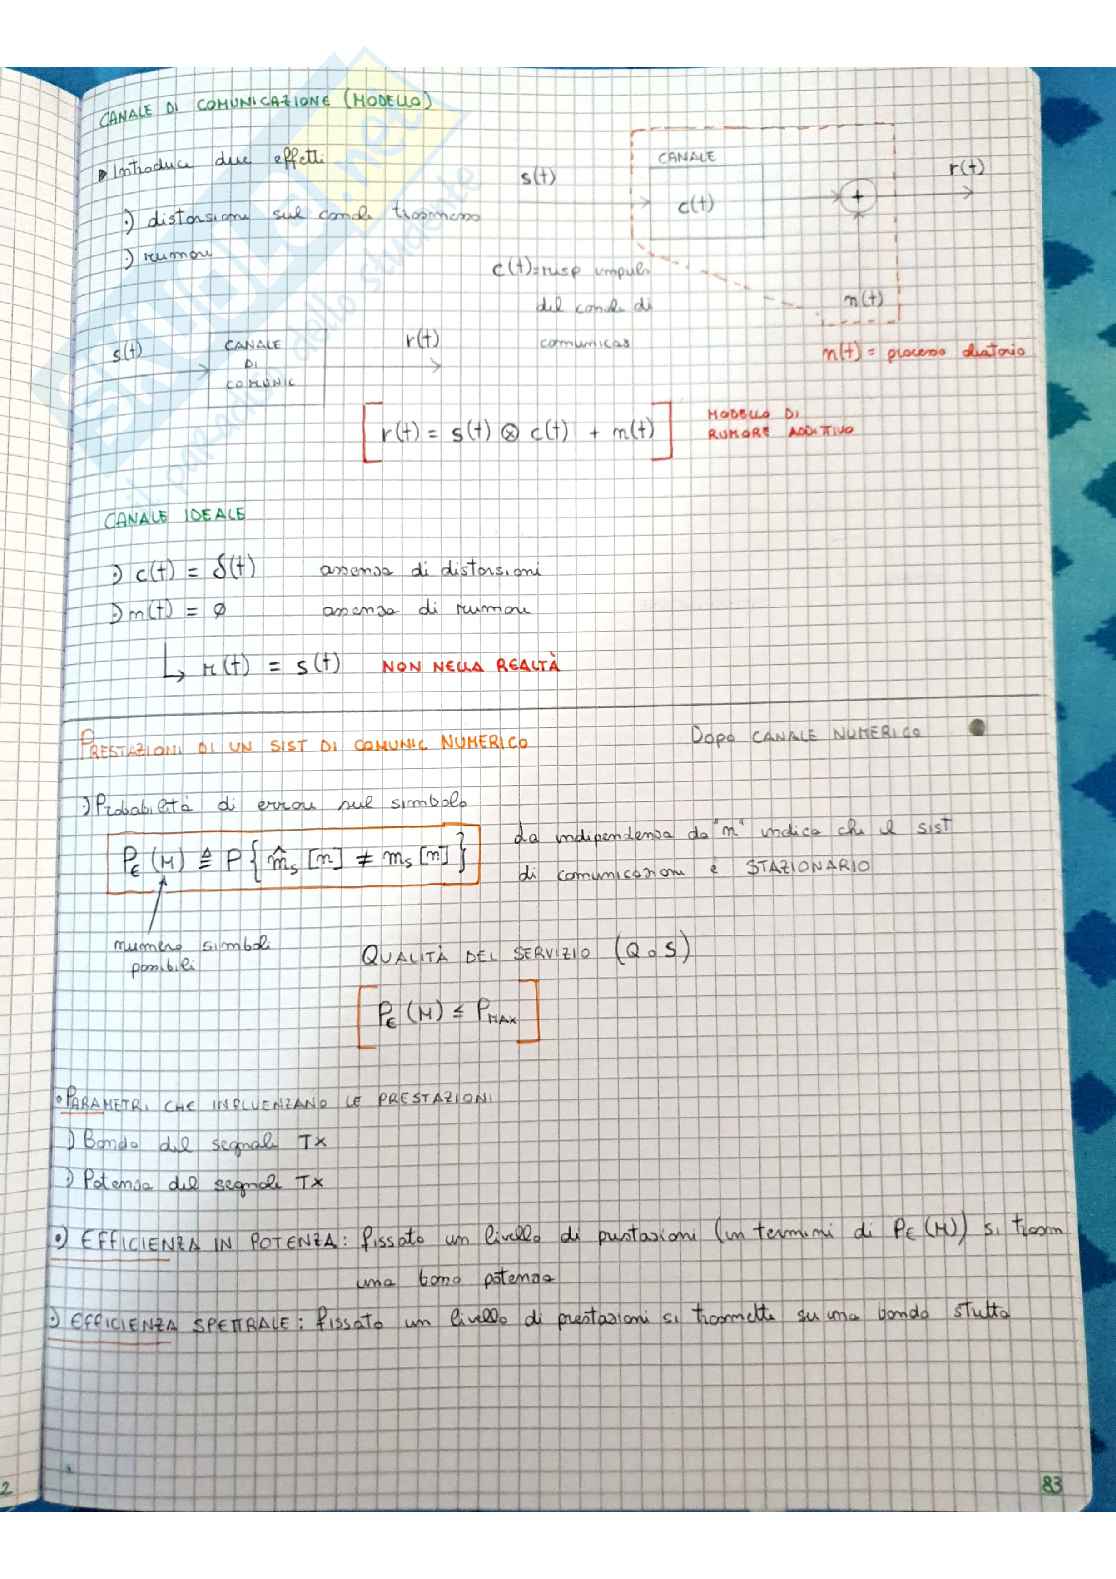 CANALE DI COMUNICAZIONE (MODELLO)
Introduce due effetti
•) distorsione sul canale trasmesso
•) rumore
s(t)
CANALE
c(t)
+
r(t)
n(t)
c(t)=risp impuls
del canale di
comunicas
n(t) = processo aleatorio
s(t)
CANALE
DI
COMUNIC
r(t)
r(t) = s(t) ⊗ c(t) + n(t)
MODELLO DI
RUMORE ADDITIVO
CANALE IDEALE
•) c(t) = δ(t) assenza di distorsioni
•) n(t) = ∅ assenza di rumore
↳ r(t) = s(t) NON NELLA REALTÀ
PRESTAZIONI DI UN SIST DI COMUNIC NUMERICO
DOPO CANALE NUMERICO
•) Probabilità di errore sul simbolo
P_E (M) ≜ P{ m̂_s [n] ≠ m_s [n] }
La indipendenza da "n" indica che il sist
di comunicazione è STAZIONARIO
numero simboli
possibili
QUALITÀ DEL SERVIZIO (QoS)
P_E (M) ≤ P_MAX
• PARAMETRI CHE INFLUENZANO LE PRESTAZIONI
•) Banda del segnale Tx
•) Potenza del segnale Tx
•) EFFICIENZA IN POTENZA: fissato un livello di prestazioni (in termini di P_E (M)) si trasm
una bassa potenza
•) EFFICIENZA SPETTRALE: fissato un livello di prestazioni si trasmette su una banda stretta
2
83
SKUOLA.net
il paradiso dello studente